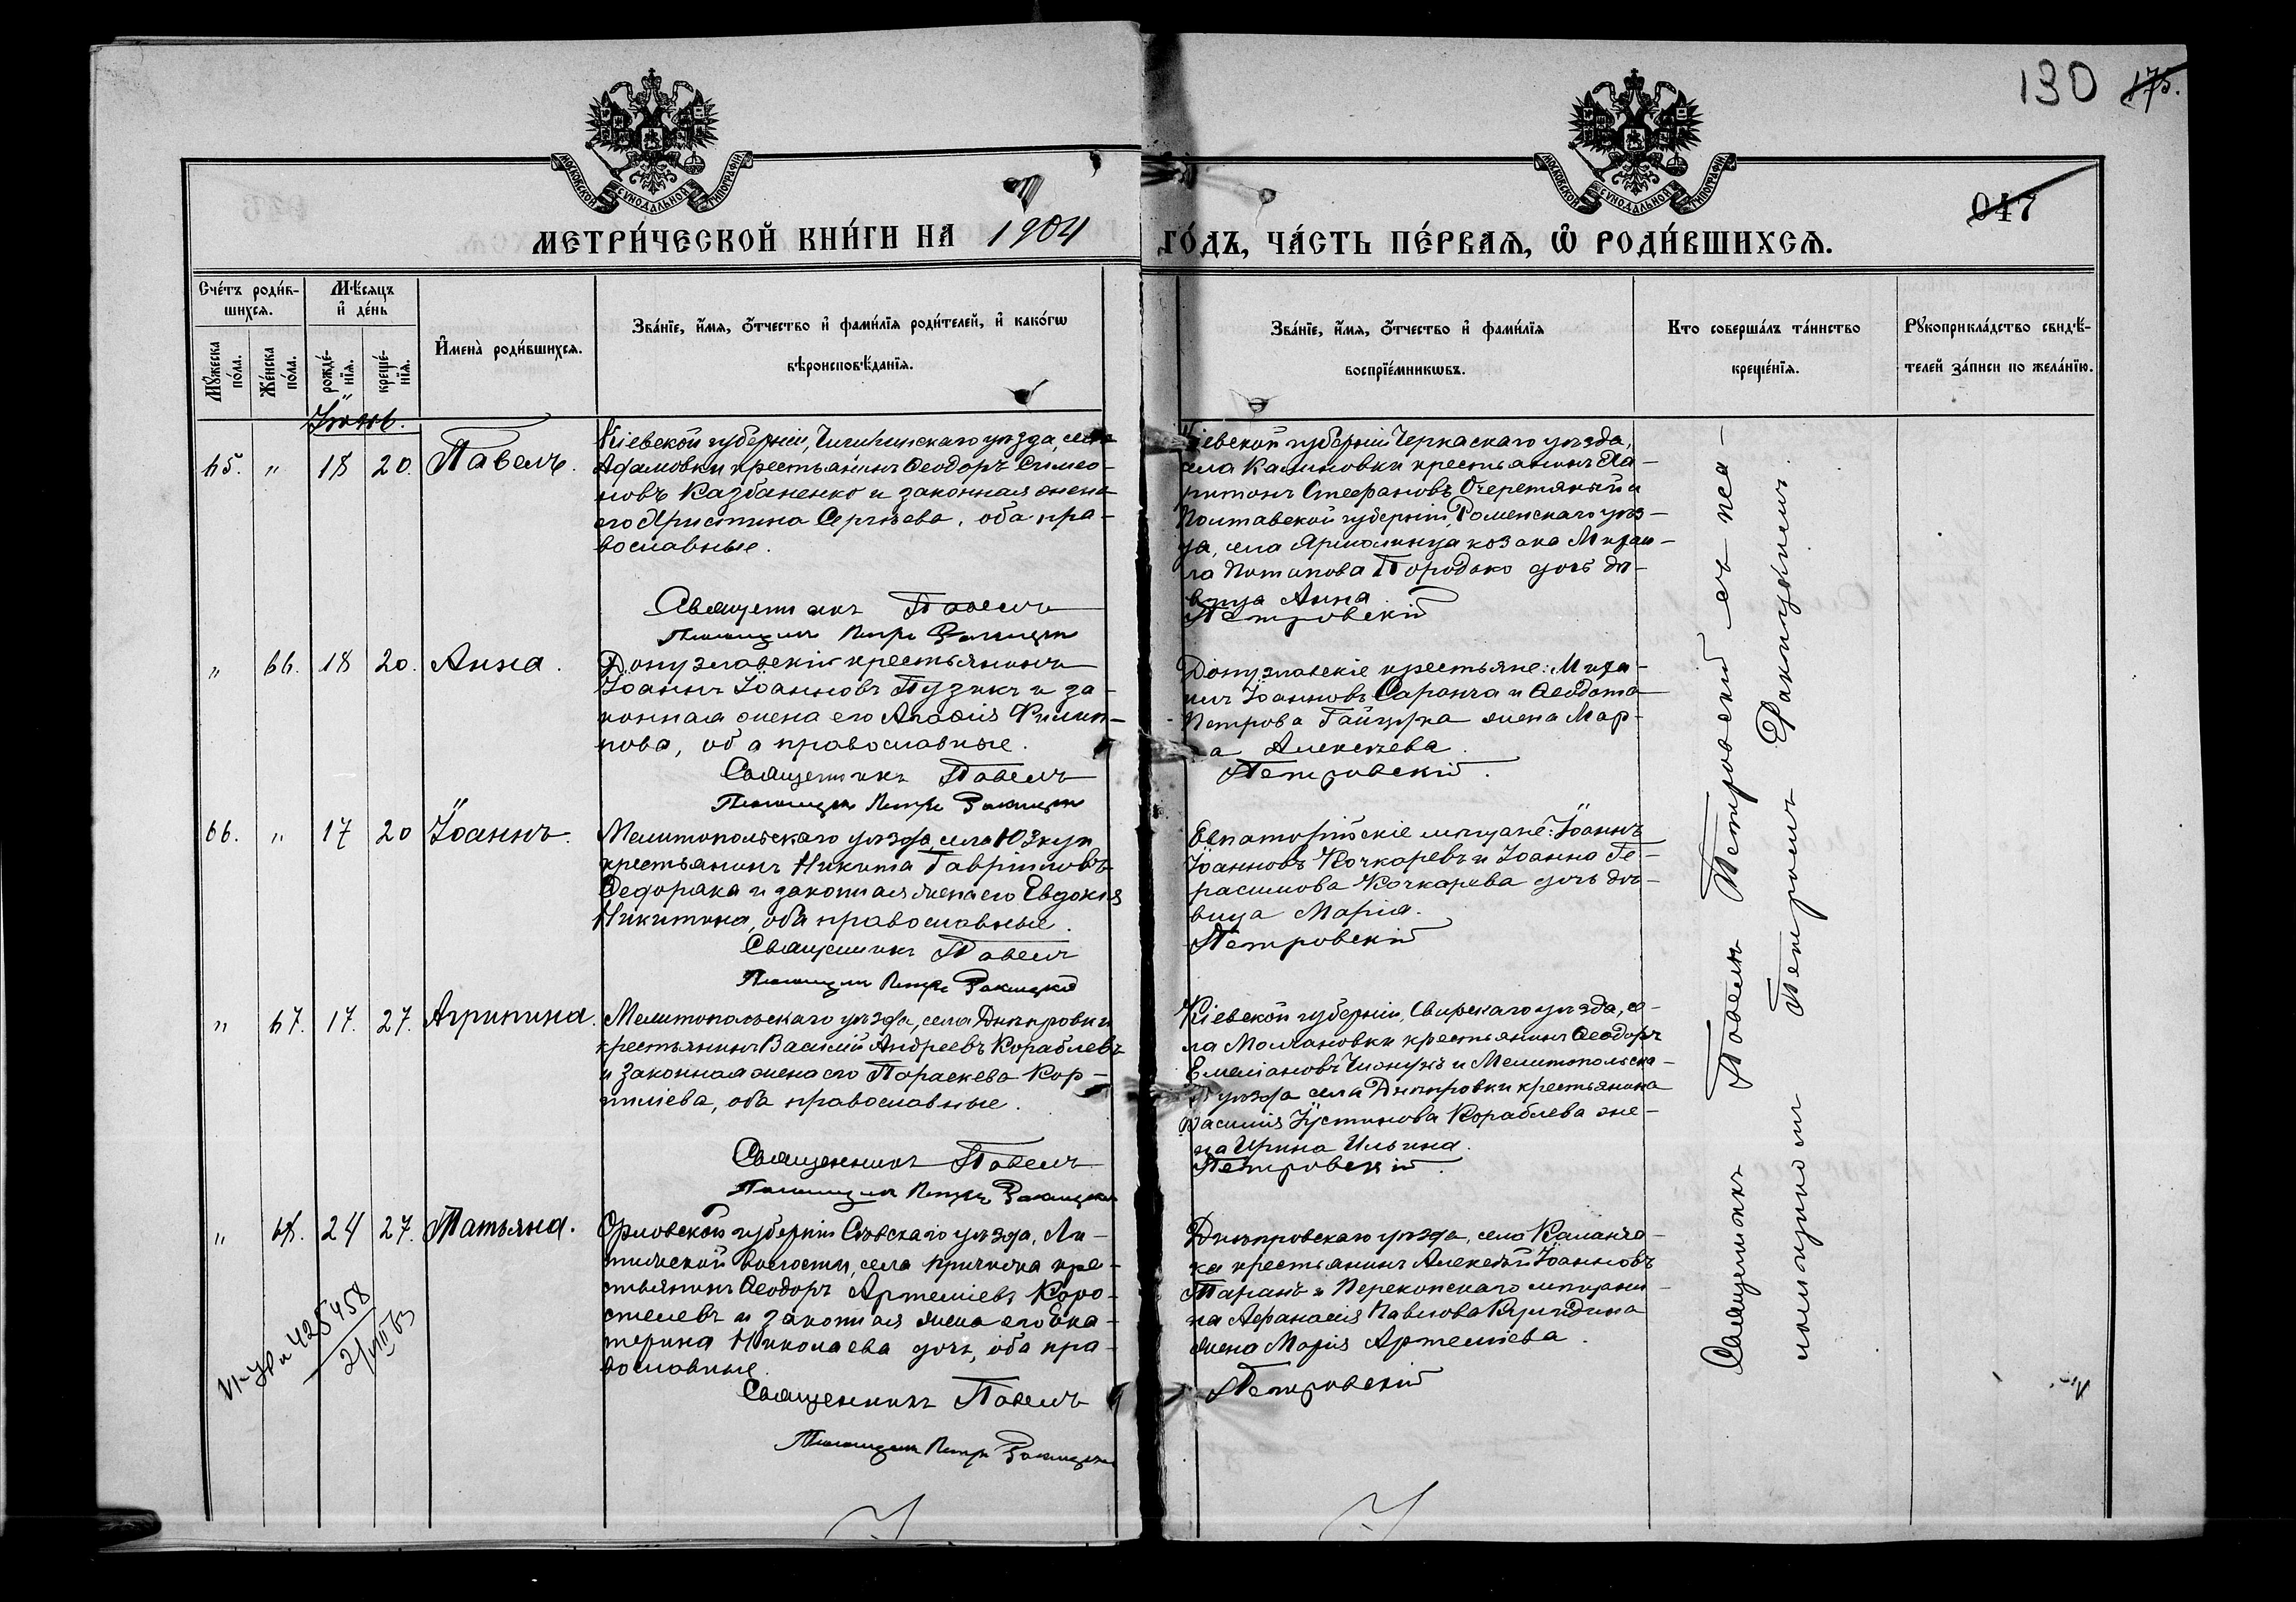 130 175.
МОСКОВСКОЙ СѴНОДАЛЬНОЙ ТИПОГРАФІИ
МОСКОВСКОЙ СѴНОДАЛЬНОЙ ТИПОГРАФІИ
047
МЕТРИ́ЧЕСКОЙ КНИ́ГИ НА 1904 ГО́ДЪ, ЧА́СТЬ ПЕ́РВАѦ, Ѡ РОДИ́ВШИХСѦ.
Сче́тъ роди́в-
шихсѧ.
Мꙋ́жеска по́ла.
Же́нска по́ла.
Мѣ́сѧцъ и҆ де́нь
рожде́-
нїѧ.
креще́-
нїѧ.
И҆мена̀ роди́вшихсѧ.
Зва́нїе, и҆́мѧ, ѻ҆́тчество и҆ фами́лїѧ роди́телей, и҆ како́гѡ
вѣроисповѣ́данїѧ.
Зва́нїе, и҆́мѧ, ѻ҆́тчество и҆ фами́лїѧ
воспрїе́мникѡвъ.
Кто соверша́лъ та́инство
креще́нїѧ.
Рꙋкоприкла́дство свидѣ́-
телей за́писи по жела́нїю.
Іюнь.
65. " 18 20. Павелъ.
Кіевской губерніи, Чигиринскаго уѣзда, села
Адамовки крестьянинъ Ѳеодоръ Симео-
новъ Казбаненко и законная жена
его Христина Сергѣева, оба пра-
вославные.
Священникъ Павелъ
Псаломщикъ Петръ Ракицкій
Кіевской губерніи Черкаскаго уѣзда,
села Калиновки крестьянинъ Ха-
ритонъ Стефановъ Очеретяный и
Полтавской губерніи, Роменскаго уѣз-
да, села Ярмолинца козака Михаи-
ла Потапова Породько дочь дѣ-
вица Анна
Петровскій
" 66. 18 20. Анна.
Донузлавскій крестьянинъ
Іоаннъ Іоанновъ Пузикъ и за-
конная жена его Агафія Филип-
пова, оба православные.
Священникъ Павелъ
Псаломщикъ Петръ Ракицкій
Донузлавскіе крестьяне: Миха-
илъ Іоанновъ Саранча и Ѳеодота
Петрова Гайдука жена Мар-
а Алексѣева.
Петровскій.
66. " 17 20 Іоаннъ.
Мелитопольскаго уѣзда села Юзкуи
крестьянинъ Никита Гавріиловъ
Федоряка и законная жена его Евдокія
Никитина, оба православные.
Священникъ Павелъ
Псаломщикъ Петръ Ракицкій
Евпаторійскіе мѣщане: Іоаннъ
Іоанновъ Кочкаревъ и Іоанна Ге-
расимова Кочкарева дочь дѣ-
вица Марія.
Петровскій
" 67. 17. 27. Агрипина.
Мелитопольскаго уѣзда, села Днѣпровки
крестьянинъ Василій Андреевъ Кораблевъ
и законная жена его Параскева Кор-
ниліева, оба православные.
Священникъ Павелъ
Псаломщикъ Петръ Ракицкій
Кіевской губерніи, Сквирскаго уѣзда, се-
ла Молчановки крестьянинъ Ѳеодоръ
Емеліановъ и Мелитопольска-
го уѣзда села Днѣпровки крестьянина
Василія Іустинова Кораблева же-
на Ирина Ильина.
Петровскій.
" 68. 24 27. Татьяна.
Орловской губерніи Сѣвскаго уѣзда,
волости, села кре-
стьянинъ Ѳеодоръ Артеміевъ Коро-
стелевъ и законная жена его Ека-
терина Николаева дочь, оба пра-
вославные.
Священникъ Павелъ
Псаломщикъ Петръ Ракицкій
Днѣпровскаго уѣзда, села Каланча-
ка крестьянинъ Алексѣй Іоанновъ
Таранъ и Перекопскаго мѣщани-
на Аѳанасія Павлова
жена Марія Артеміева.
Петровскій
Священникъ Павелъ Петровскій съ пса-
ломщикомъ Петромъ Ракицкимъ.
425458
2/VIII 63